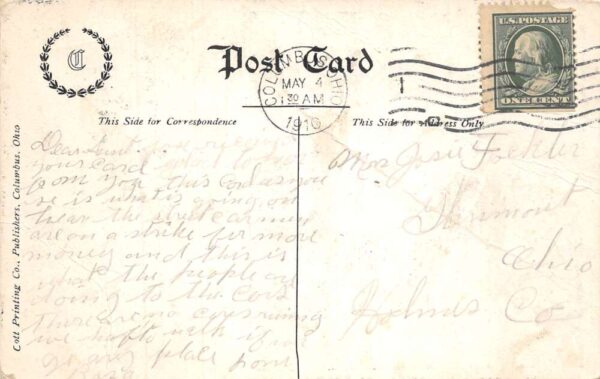 C
Post Card
COLUMBUS, OHIO
MAY 4
1 30 AM
1910
U.S. POSTAGE
ONE CENT
This Side for Correspondence
This Side for Address Only
Colt Printing Co., Publishers, Columbus, Ohio
Dear Aunt
your card
from you this Card as you
se is what is going on
hear the street car men
are on a strike for more
money and this is
what the people are
doing to the Cars
There are no cars running
we haft to walk if we
go any place from
Mrs Josie
Ohio
Holmes Co